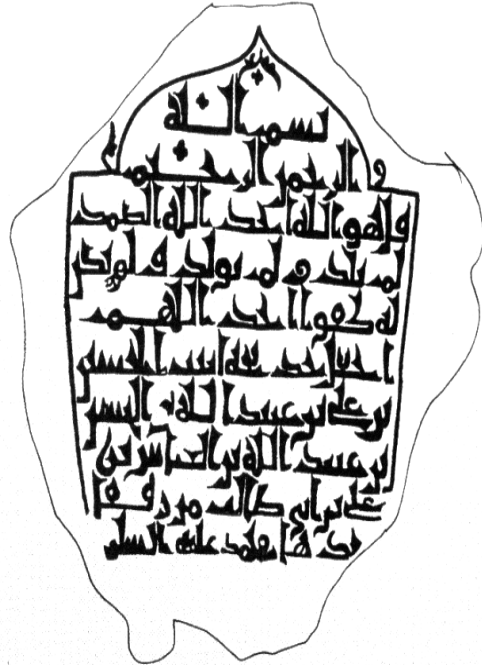 بسم الله
الرحمن الرحيم
قل هو الله احد الله الصمد
لم يلد و لم يولد و لم يكن
له كفوا احد اللهم
اجعل خديجة ابنت
بن علي بن عبيد الله بن الحسن
بن عبيد الله بن العباس بن
علي بن ابي طالب من رفقا
جدها محمد عليه السلم